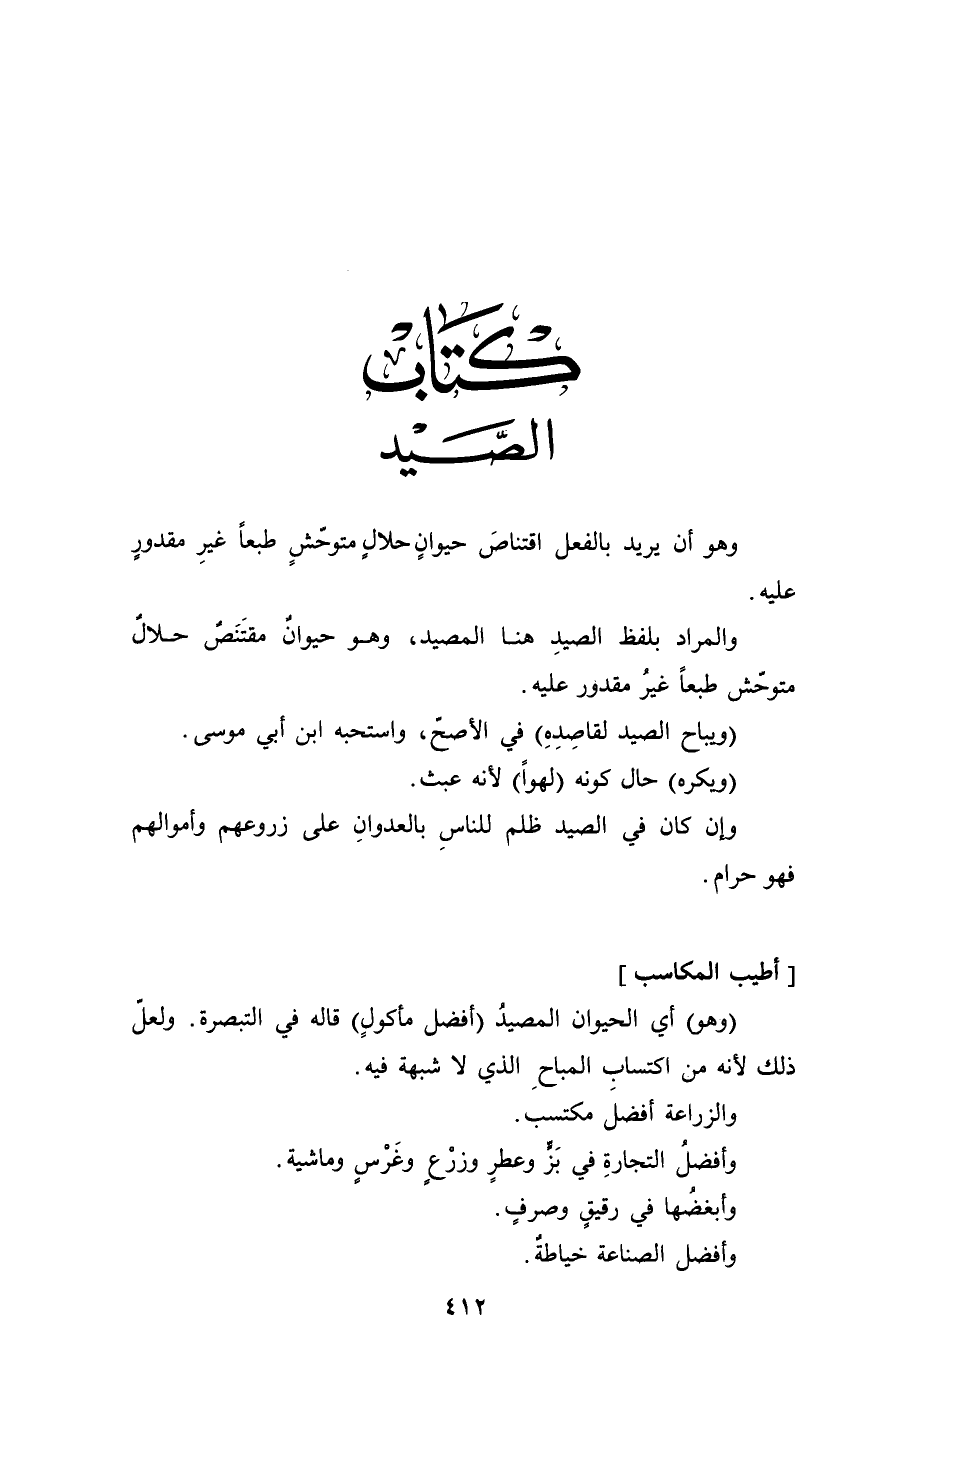 كتاب
الصَّيْد
وهو أن يريد بالفعل اقتناصَ حيوانٍ حلالٍ متوحّشٍ طبعاً غيرِ مقدورٍ
عليه .
والمراد بلفظ الصيدِ هنا المصيد، وهو حيوانٌ مقتَنَصٌ حلالٌ
متوحّش طبعاً غيرُ مقدور عليه .
(ويباح الصيد لقاصِدِهِ) في الأصحّ، واستحبه ابن أبي موسى .
(ويكره) حال كونه (لهواً) لأنه عبث .
وإن كان في الصيد ظلم للناسِ بالعدوانِ على زروعهم وأموالهم
فهو حرام .
[ أطيب المكاسب ]
(وهو) أي الحيوان المصيدُ (أفضل مأكولٍ) قاله في التبصرة . ولعلّ
ذلك لأنه من اكتسابِ المباحِ الذي لا شبهة فيه .
والزراعة أفضل مكتسب .
وأفضلُ التجارةِ في بَزٍّ وعطرٍ وزرْعٍ وغَرْسٍ وماشية .
وأبغضُها في رقيقٍ وصرفٍ .
وأفضل الصناعة خياطةٌ .
٤١٢